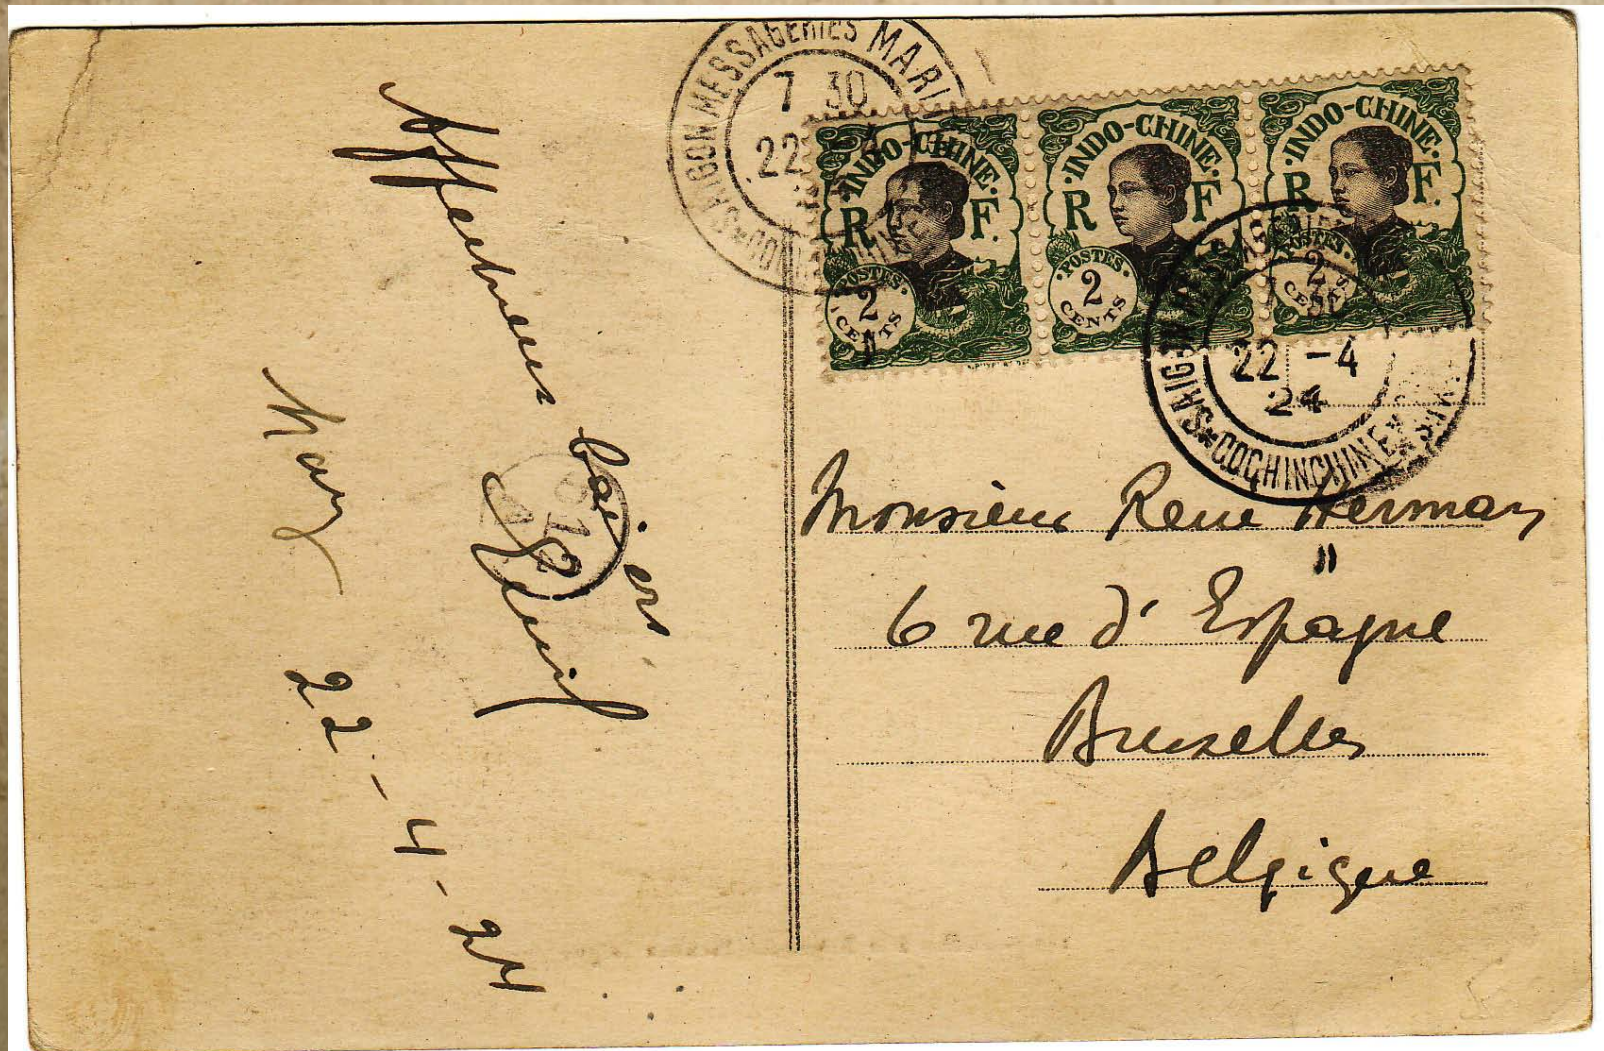 Affectueux baisers
22-4-24
SAIGON MESSAGERIES MARI
7 30
22 -4
INDO-CHINE
R F
POSTES
2
CENTS
INDO-CHINE
R F
POSTES
2
CENTS
INDO-CHINE
R F
POSTES
2
CENTS
22 -4
24
COCHINCHINE
512
Monsieur Rene Herman
"
6 rue d'Espagne
Bruxelles
Belgique